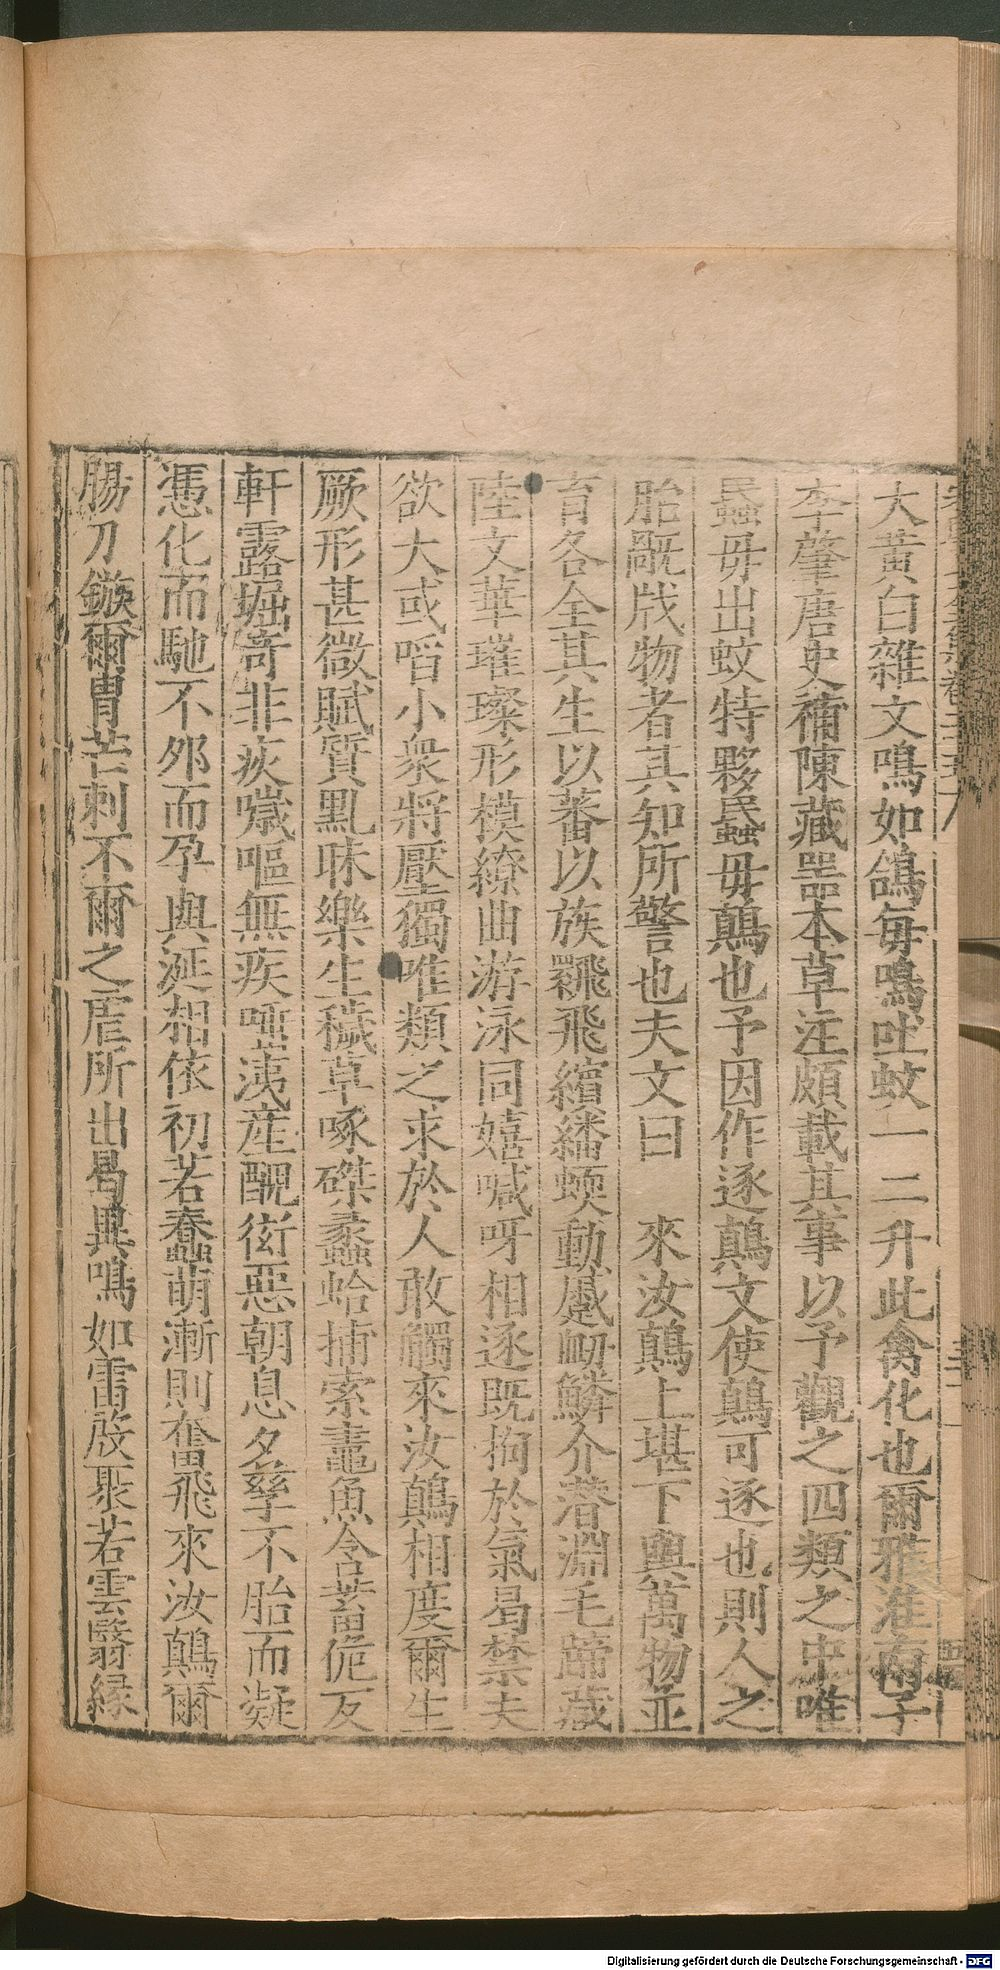 大黃白雜文鳴如鴿每鳴吐蚊一二升此禽化也爾雅淮南子
李肇唐史補陳藏器本草注頗載其事以予觀之四類之中唯
蟁毋出蚊特夥蟁毋鷏也予因作逐鷏文使鷏可逐也則人之
胎戕物者其知所警也夫文曰 來汝鷏上堪下輿萬物並
育各全其生以蕃以族飛繽繙蝡動鱗介潜淵毛蹄藏
陸文華璀璨形模繚曲游泳同嬉喊呀相逐既拘於氣曷禁夫
欲大或㗖小衆將壓獨唯類之求於人敢觸來汝鷏相度爾生
厥形甚微賦質㒵昧樂生穢草啄磔蟊蛤捕索鼃魚含蓄傂㐲
軒露堀奇非痰噦嘔無疾啞荑産醜衒惡朝息夕孳不胎而凝
憑化而馳不夘而孕與涎相依初若蠢萌漸則奮飛來汝鷏爾
腸刀鏃爾胃芒刺不爾之虐所出曷異鳴如雷啟聚若雲翳緣
Digitalisierung gefördert durch die Deutsche Forschungsgemeinschaft - DFG